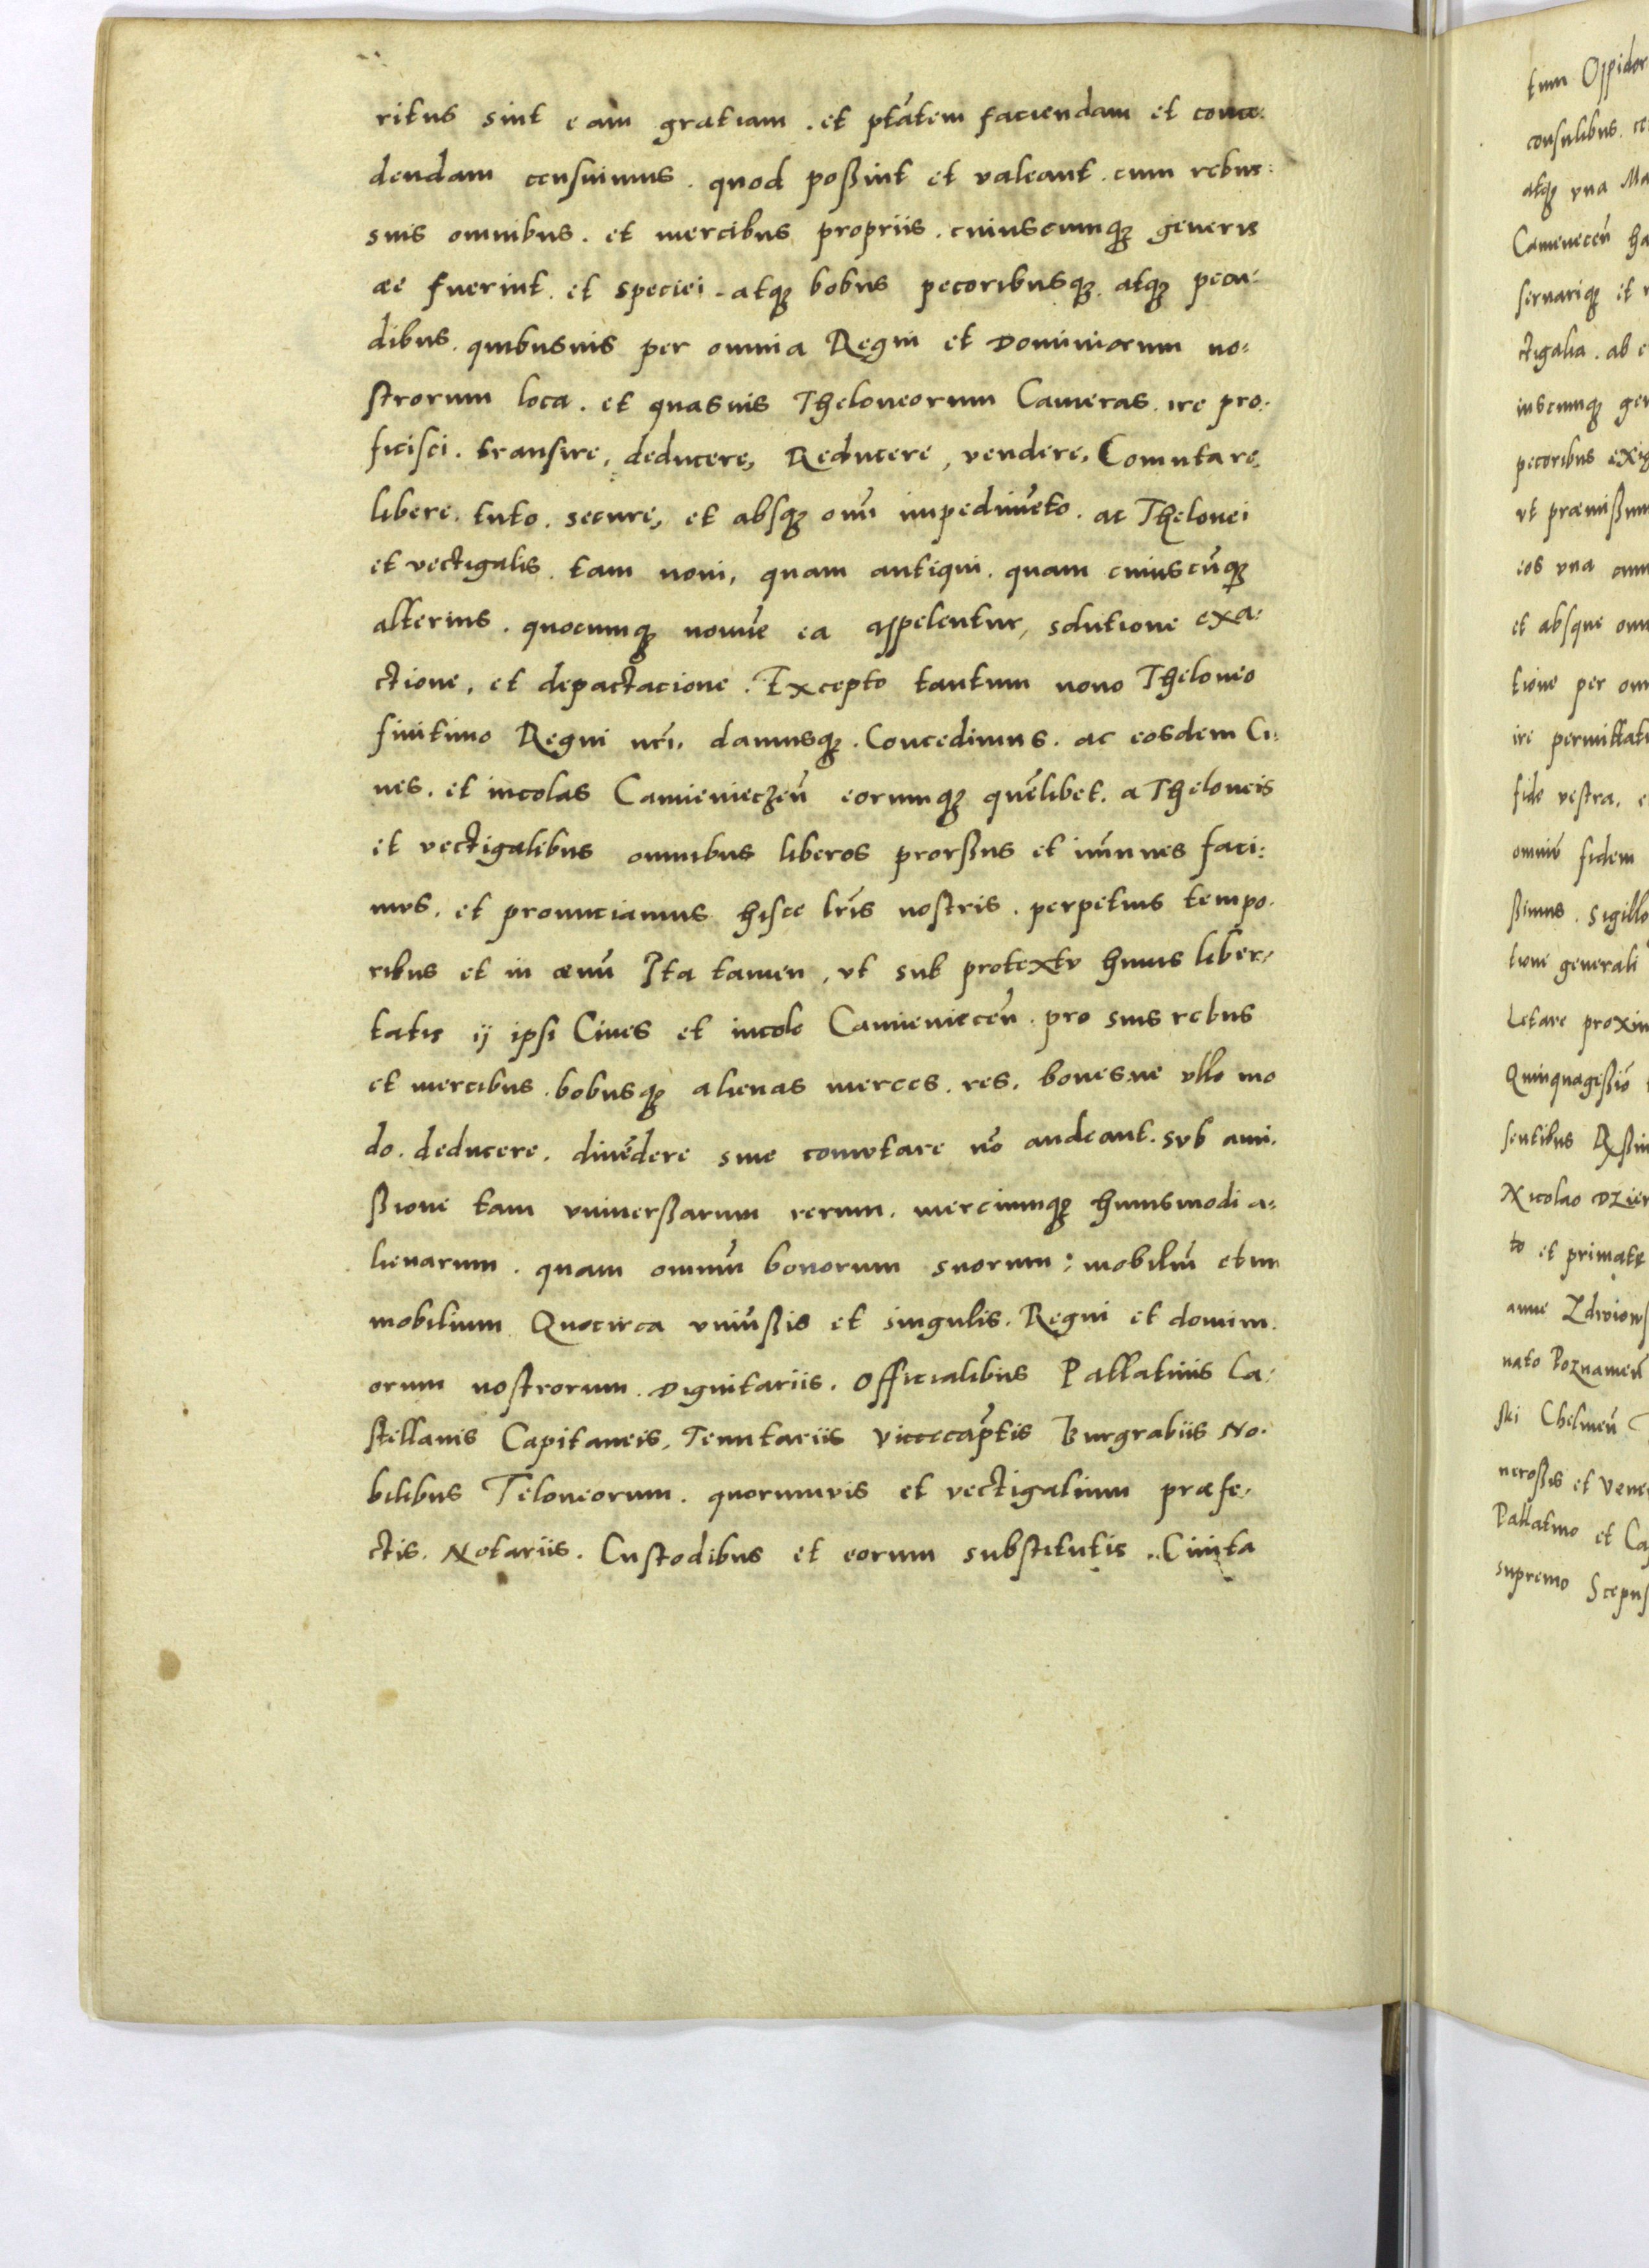 ritus sint eam gratiam . et ptãtem faciendam et conce-
dendam censuimus . quod poßint et valeant . cum rebus
suis omnibus . et mercibus propriis . cuiuscumq; generis
ae fuerint . et speciei . atq; bobus pecoribusq; atq; pecu-
dibus . quibusuis per omnia Regni et Dominiorum no-
strorum loca . et quasuis Theloneorum Cameras . ire pro-
ficisci . transire, deducere, Reducere, vendere, Comutare,
libere . tuto . secure, et absq; omĩ impedimẽto . ac Thelonei
et vectigalis . tam noui, quam antiqui . quam cuiuscũq;
alterius . quocumq; nomĩe ea appelentur, solutione exa-
ctione, et depactacione . Excepto tantum nouo Theloneo
finitimo Regni nr̃i. damusq; . Concedimus . ac eosdem Ci-
ues . et incolas Camienieczeñ eorumq; quẽlibet . a Theloneis
et vectigalibus omnibus liberos prorßus et imũnes faci-
mus . et pronunciamus hisce lrĩs nostris . perpetuis tempo-
ribus et in aeuũ Ita tamen, vt sub protextu huius liber-
tatis ij ipsi Ciues et incole Camienieceñ . pro suis rebus
et mercibus . bobusq; alienas merces . res . bouesue vllo mo
do . deducere . diuẽdere siue comutare nõ audeant . sub ami-
ßione tam vniuerßarum rerum . merciumq; huiusmodi a-
lienarum . quam omniũ bonorum suorum : mobiliũ et im
mobilium Quocirca vniũßis et singulis . Regni et domini-
orum nostrorum . Dignitariis . Officialibus Pallatinis Ca-
stellanis Capitaneis, Tenutariis vicecapt̃is Burgrabiis No-
bilibus Teloneorum . quorumvis et vectigalium praefe-
ctis . Notariis . Custodibus et eorum substitutis . Ciuita
tum Oppidor
consulibus . ce
atq; vna Ma
Cameneceñ ha
seruariq; et
ctigalia . ab e
iuscumq; gen
pecoribus exig
vt praemißum
eos vna cum
et absque omn
tione per om
ire permittat
fide vestra, e
omniũ fidem
ßimus . sigillo
tione generali
Letare proxim
Quinquageßiõ
sentibus
Nicolao Dzier
to et primate
anne Zdroiows
nato Poznameñ
ski Chelmeñ
neroßis et Vene
Pallatino et Ca
supremo Scepus